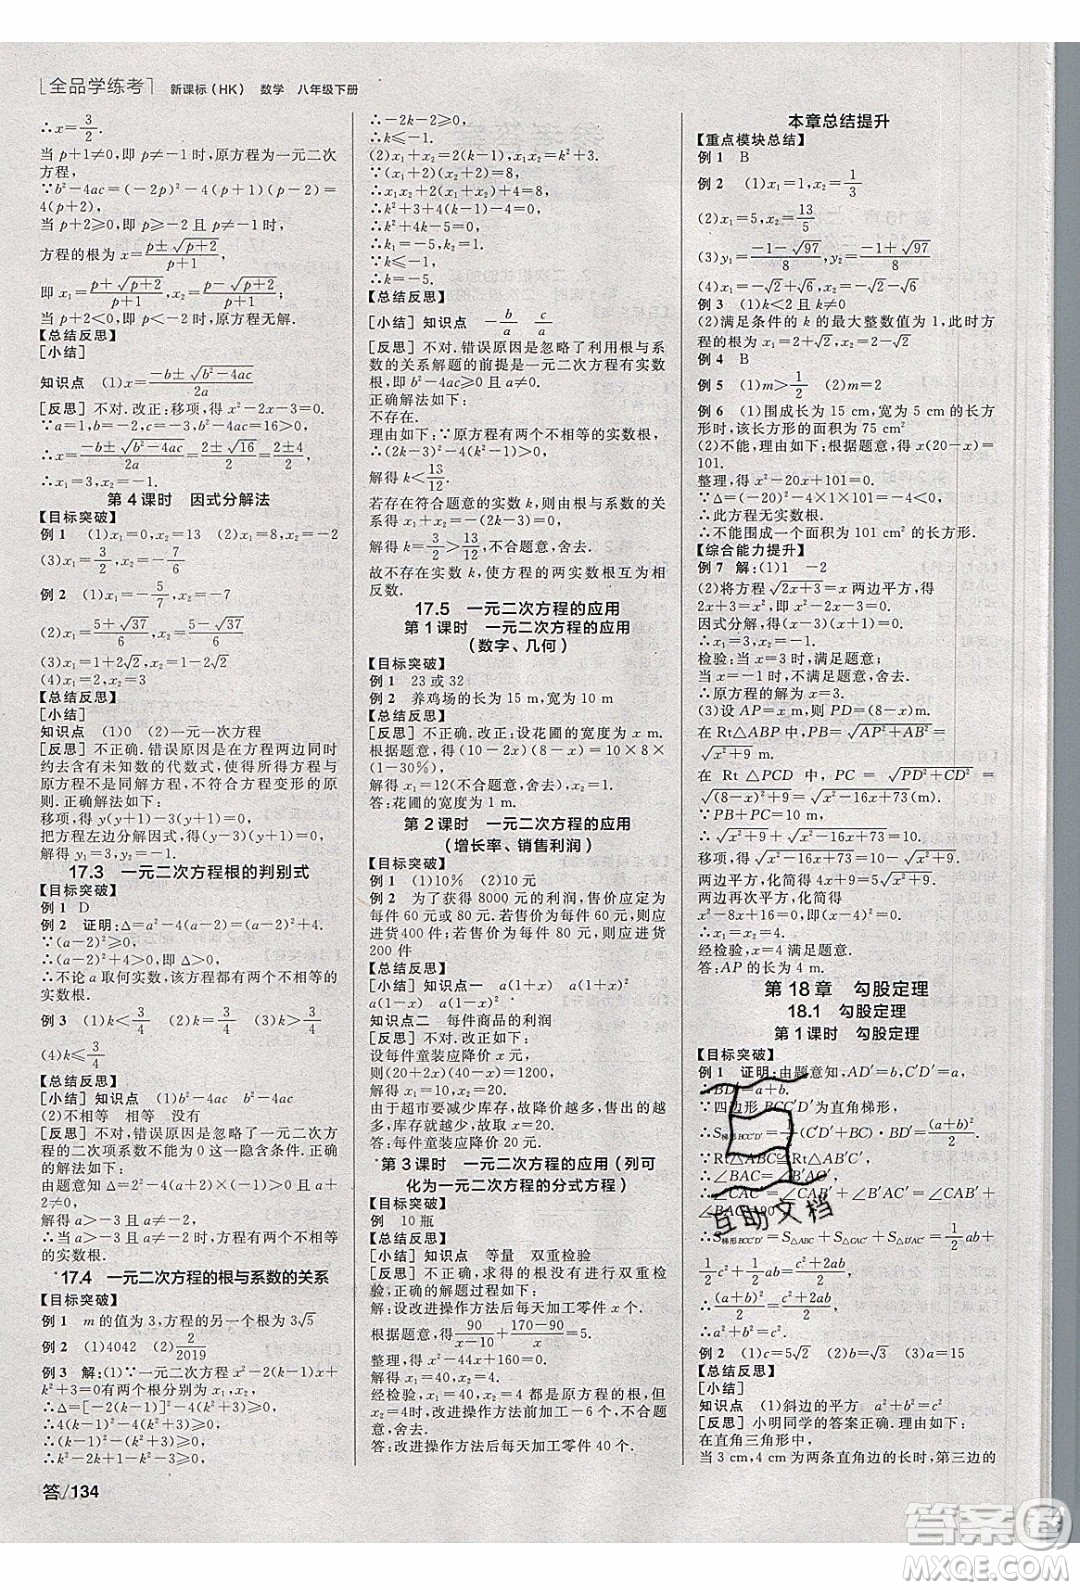 全品学练考 新课标(HK) 数学 八年级下册
∴x=3/2.
当 p+1≠0,即 p≠-1 时,原方程为一元二次
方程,
∵b²-4ac=(-2p)²-4(p+1)(p-2)=
4(p+2),
当 p+2≥0,即 p≥-2 且 p≠-1 时,
方程的根为 x=(p±√(p+2))/(p+1),
即 x₁=(p+√(p+2))/(p+1),x₂=(p-√(p+2))/(p+1);
当 p+2<0,即 p<-2 时,原方程无解.
【总结反思】
[小结]
知识点 (1)x=(-b±√(b²-4ac))/2a
[反思] 不对.改正:移项,得 x²-2x-3=0.
∵a=1,b=-2,c=-3,b²-4ac=16>0,
∴x=(-b±√(b²-4ac))/2a=(2±√16)/2=(2±4)/2,
∴x₁=3,x₂=-1.
第 4 课时 因式分解法
【目标突破】
例 1 (1)x₁=0,x₂=4 (2)x₁=0,x₂=-2
(3)x₁=3/2,x₂=-7/6
例 2 (1)x₁=-5/7,x₂=0
(2)x₁=(5+√37)/6,x₂=(5-√37)/6
(3)x₁=1+2√2,x₂=1-2√2
(4)x₁=x₂=2
【总结反思】
[小结]
知识点 (1)0 (2)一元一次方程
[反思] 不正确.错误原因是在方程两边同时
约去含有未知数的代数式,使得所得方程与
原方程不是同解方程,不符合方程变形的原
则.正确解法如下:
移项,得 y(y-1)-3(y-1)=0,
把方程左边分解因式,得(y-3)(y-1)=0,
解得 y₁=3,y₂=1.
17.3 一元二次方程根的判别式
例 1 D
例 2 证明:Δ=a²-4(a-2)=(a-2)²+4.
∵(a-2)²≥0,
∴(a-2)²+4>0,即 Δ>0,
∴不论 a 取何实数,该方程都有两个不相等的
实数根.
例 3 (1)k<3/4 (2)k=3/4 (3)k>3/4
(4)k≤3/4
【总结反思】
[小结] 知识点 (1)> = <
(2)不相等 相等 没有
[反思] 不对,错误原因是忽略了一元二次方
程的二次项系数不能为 0 这一隐含条件.正
确的解法如下:
由题意知 Δ=16+4(a-1)>0 且 a-1≠0,
解得 a>-3 且 a≠1,
∴当 a>-3 且 a≠1 时,方程有两个不相等
的实数根.
17.4 一元二次方程的根与系数的关系
【目标突破】
例 1 m 的值为 3,方程的另一个根为 3√5
例 2 (1)4042 (2)2/2019
例 3 解:(1)∵一元二次方程 x²-2(k-1)x+
k²+3=0 有两个实数根分别为 x₁,x₂,
∴Δ=[-2(k-1)]²-4(k²+3)≥0,
∴4(k-1)²-4(k²+3)≥0,
∴(k-1)²-(k²+3)≥0,
∴k²-2k+1-k²-3≥0,
∴-2k-2≥0,
∴k≤-1.
(2)x₁+x₂=2(k-1),x₁x₂=k²+3.
∵(x₁-1)(x₂-1)=8,
∴x₁x₂-(x₁+x₂)+1=8,
∴k²+3-2(k-1)+1=8,
∴k²+4-2k+2=8,
∴k²-2k-2=0,
∴k=1±√3.
【总结反思】
[小结] 知识点 -b/a c/a
[反思] 不对.错误原因是忽略了利用根与系
数的关系解题的前提是一元二次方程有实数根.
正确解法如下:
不存在.
理由如下:∵原方程有两个不相等的实数根,
∴(2k-3)²-4(k-1)(k+1)>0,
解得 k<13/12.
若存在符合题意的实数 k,由根与系数的关系,
解得 k=3/2>13/12,不合题意,舍去.
故不存在 k,使方程的两实数根互为相
反数.
17.5 一元二次方程的应用
第 1 课时 一元二次方程的应用
(数字、几何)
【目标突破】
例 1 23 或 32
例 2 养鸡场的长为 15 m,宽为 10 m
例 3 解:设花圃的宽度为 x m.
根据题意,得(10-2x)(8-2x)=10×8×
(1-40%).
解得 x₁=1,x₂=8(不合题意,舍去).
答:花圃的宽度为 1 m.
第 2 课时 一元二次方程的应用
(增长率、销售利润)
例 1 (1)10% (2)10
例 2 为了获得 8000 元的利润,售价应定为
每件 60 元或 80 元;若售价为每件 60 元,则应
进货400 件;若售价为每件 80 元,则应进货
200 件
【总结反思】
[小结] 知识点一 a(1+x) a(1+x)²
a(1-x) a(1-x)²
知识点二 每件商品的利润
[反思] 不对.改正:
设每件童装应降价 x 元,
则(40-x)(20+2x)=1200,
解得 x₁=10,x₂=20.
由于超市要减少库存,故降价越多,售出的越
多,库存就越少,故 x=20.
答:每件童装应降价 20 元.
第 3 课时 一元二次方程的应用(列可
化为一元二次方程的分式方程)
【目标突破】
例 10 瓶
[小结] 知识点 等量 双重检验
[反思] 不正确,求得的结果没有进行双重检
验,正确的解题过程如下:
解:设改进操作方法后每天加工零件 x 个.
根据题意,得90/(x-10)+(170-90)/x=5.
整理,得 x²-44x+160=0.
解得 x₁=4,x₂=40.
经检验,x₁=4,x₂=40 都是原方程的根,但当
x=4时,改进操作方法后每天加工零件 4 个,
x=2=4时,改进操作方法前加工-6 个,不合题意,舍去.
答:改进操作方法后每天加工零件 40 个.
本章总结提升
【重点模块总结】
例 1 B
例 2 (1)x₁=1,x₂=1/3
(2)x₁=5,x₂=13/5
(3)y₁=(-1-√97)/8,y₂=(-1+√97)/8
(4)x₁=-2+√6,x₂=-2-√6
例 3 (1)k<2 且 k≠0
(2)满足条件的 k 的最大整数值为 1,
此时方程的根为 x₁=1+√2,x₂=1-√2
例 4 B
例 5 (1)m>1/2 (2)m=2
例 6 (1)围成长为 15 cm,宽为 5 cm 的长方
形时,该长方形的面积为 75 cm²
(2)不能,理由如下:根据题意,得 x(20-x)=
101.
整理,得 x²-20x+101=0.
∵Δ=(-20)²-4×1×101=-4<0,
∴此方程无实数根,
∴不能围成一个面积为 101 cm² 的长方形.
【综合能力提升】
例 7 解:(1)1 -2
(2)将方程√(2x+3)=x 两边平方,得
2x+3=x²,即 x²-2x-3=0.
因式分解,得(x-3)(x+1)=0,
∴x₁=3,x₂=-1.
检验:当 x=3 时,满足题意;
当 x=-1 时,不满足题意,舍去.
∴原方程的解为 x=3.
(3)设 AP=x m,则 PD=(8-x)m.
在 Rt△ABP 中,PB=√(AP²+AB²)=
√(x²+9) m.
在 Rt △PCD 中,PC=√(PD²+CD²)=
√((8-x)²+9)=√(x²-16x+73)(m).
∵PB+PC=10,
∴√(x²+9)+√(x²-16x+73)=10.
移项,得√(x²-16x+73)=10-√(x²+9),
两边平方,化简得 4x+9=5√(x²+9),
两边再平方,化简得
x²-8x+16=0,即(x-4)²=0,
∴x=4.
经检验,x=4 满足题意.
答:AP 的长为 4 m.
第 18 章 勾股定理
18.1 勾股定理
第 1 课时 勾股定理
【目标突破】
例 1 证明:由题意知,AD′=b,C′D′=a,
∴BD′=a+b.
∵四边形 BCC′D′为直角梯形,
∴S梯形BCC′D′=1/2(C′D′+BC)·BD′=(a+b)²/2.
∵Rt△ABC≌Rt△AB′C′,
∴∠BAC=∠B′AC′,
互助文档
∴S梯形BCC′D′=S△ABC+S△CAC′+S△D′AC′=
1/2ab+1/2c²+1/2ab=(c²+2ab)/2,
∴(a+b)²/2=(c²+2ab)/2,
∴a²+b²=c².
例 2 (1)c=5√2 (2)b=3 (3)a=15
【总结反思】
[小结]
知识点 (1)斜边的平方 a²+b²=c²
[反思] 小明同学的答案正确.理由如下:
在直角三角形中,
当 3 cm,4 cm 为两条直角边的长时,第三边的
答/134
答案圈
MXQE.COM